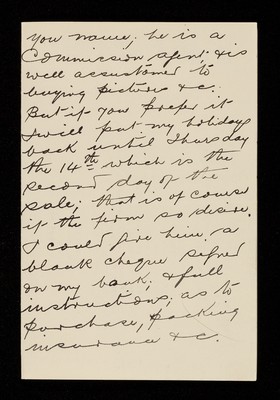 you name; he is a
Commission agent; & is
well accustomed to
buying pictures &c.
But if you prefer it
I will put my holiday
back until Thursday
the 14th which is the
second day of the
sale; that is of course
if the firm so desire.
I could give him a
blank cheque signed
on my bank; & full
instructions; as to
purchase, packing
insurance &c.